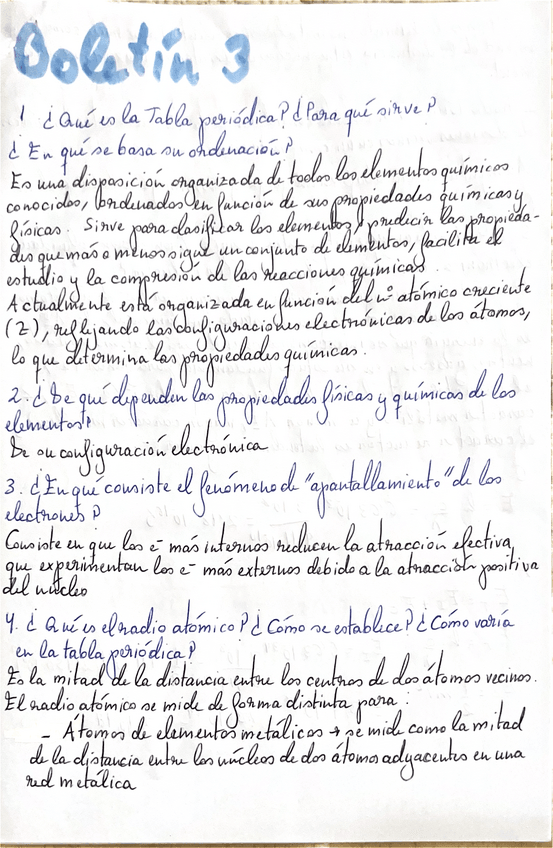 Boletín 3
1 ¿Qué es la Tabla periódica? ¿Para qué sirve?
¿En qué se basa su ordenación?
Es una disposición organizada de todos los elementos químicos
conocidos, ordenados en función de sus propiedades químicas y
físicas. Sirve para clasificar los elementos, predecir las propieda-
des que más o menos sigue un conjunto de elementos, facilita el
estudio y la compresión de las reacciones químicas.
Actualmente está organizada en función del nº atómico creciente
(Z), reflejando las configuraciones electrónicas de los átomos,
lo que determina las propiedades químicas.
2. ¿De qué dependen las propiedades físicas y químicas de los
elementos?
De su configuración electrónica
3. ¿En qué consiste el fenómeno de "apantallamiento" de los
electrones?
Consiste en que los e⁻ más internos reducen la atracción efectiva
que experimentan los e⁻ más externos debido a la atracción positiva
del núcleo
4. ¿Qué es el radio atómico? ¿Cómo se establece? ¿Cómo varía
en la tabla periódica?
Es la mitad de la distancia entre los centros de dos átomos vecinos.
El radio atómico se mide de forma distinta para:
- Átomos de elementos metálicos → se mide como la mitad
de la distancia entre los núcleos de dos átomos adyacentes en una
red metálica